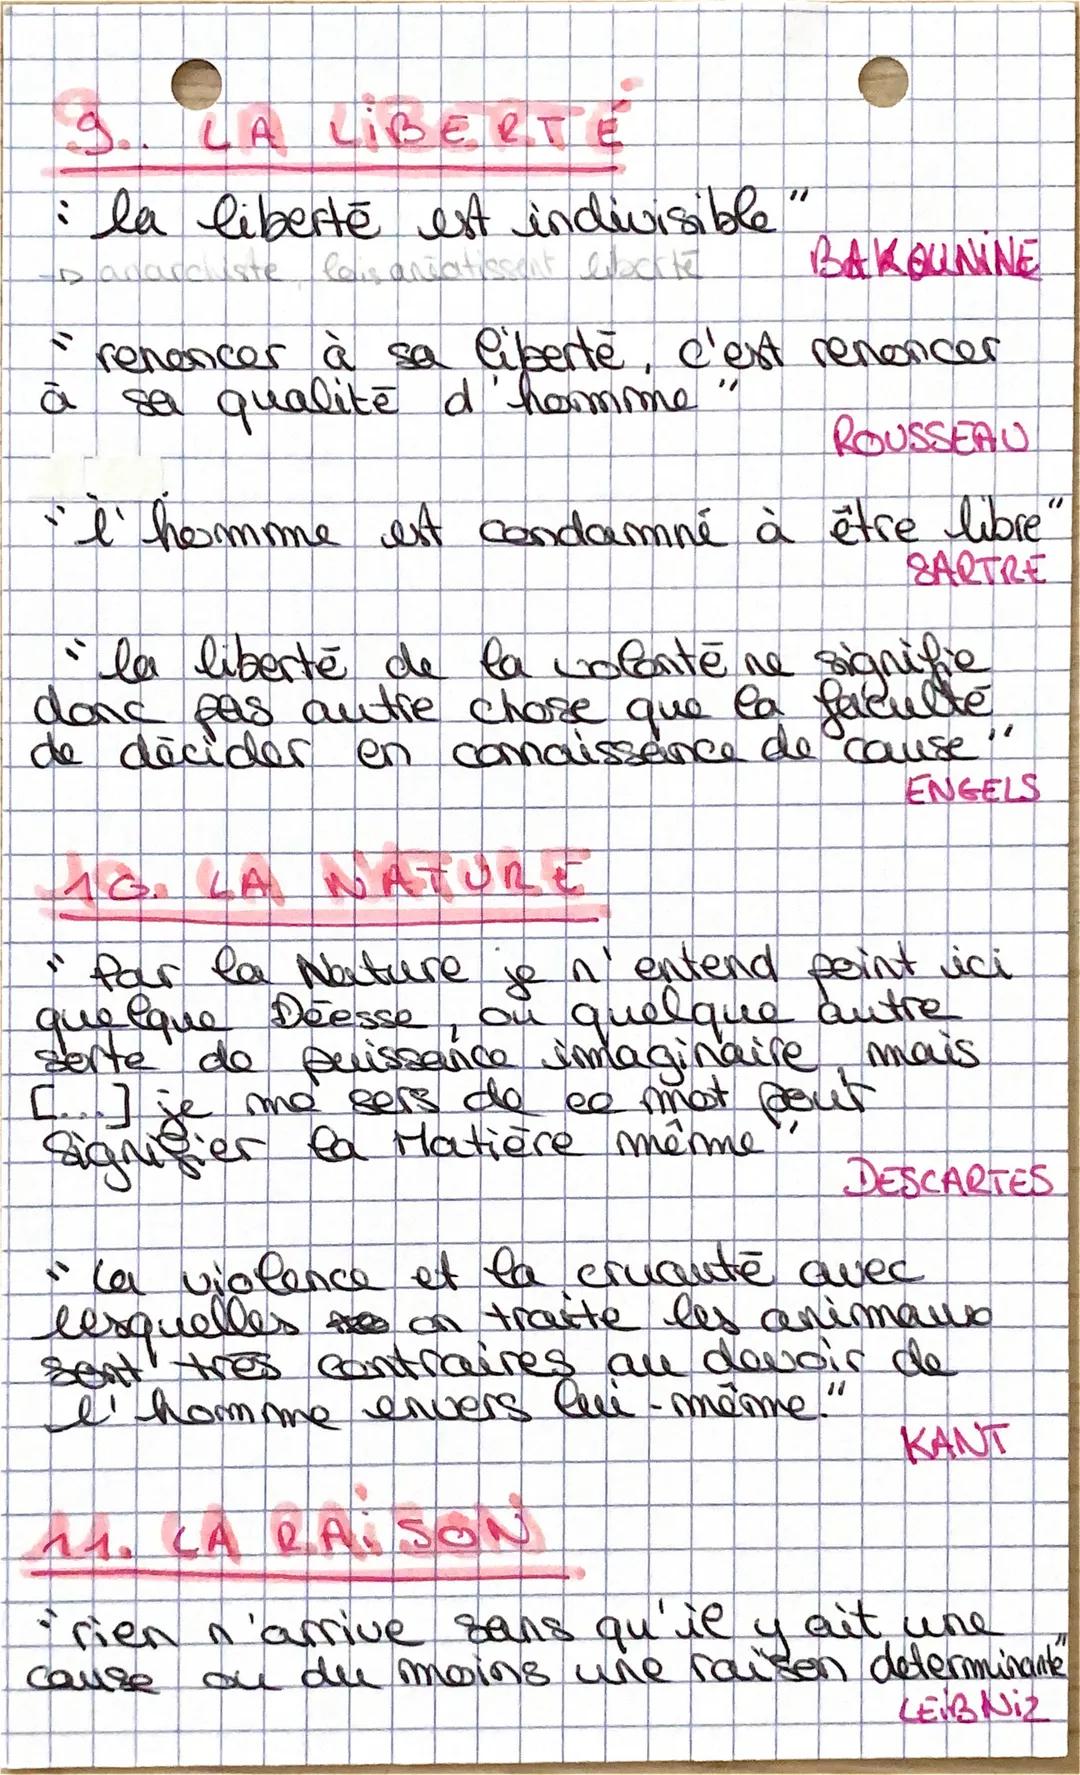 9. LA LiBERTÉ
" la liberté est indivisible"
BAKOUNINE
→ anarchiste, lois anéatissent liberté
" renoncer à sa liberté, c'est renoncer
à sa qualité d'homme "
ROUSSEAU
" l'homme est condamné à être libre"
SARTRE
" la liberté de la volonté ne signifie
donc pas autre chose que la faculté
de décider en connaissance de cause "
ENGELS
10. LA NATURE
" Par la Nature je n'entend point ici
quelque Déesse, ou quelque autre
sorte de puissance imaginaire, mais
[...] je me sers de ce mot pour
signifier la Matière même "
DESCARTES
" La violence et la cruauté avec
lesquelles on traite les animaux
sont très contraires au devoir de
l'homme envers lui-même."
KANT
11. LA RAiSON
" rien n'arrive sans qu'il y ait une
cause ou du moins une raison determinante"
LEiBNiZ